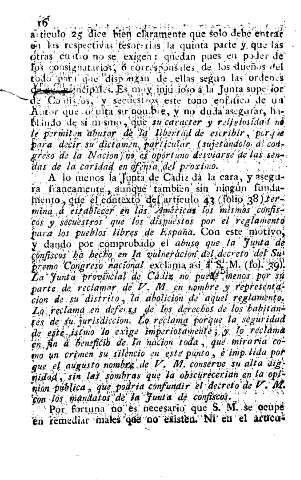 16
articulo 25 dice bien claramente que solo debe entrar
en las respectivas tesorerías la quinta parte y que las
otras cuatro no se exigen: quedan pues en poder de
los consignatarios, ó corresponsales de los dueños del
todo para que dispongan de ellas segun las ordenes
de principales. Es muy injurioso á la Junta superior
de Confiscos, y secuestros este tono enfatica de un
Autor que oculta su nombre, y no duda asegurar, ha-
blando de si mismo, que su caracter y religiosidad no
le permiten abusar de la libertad de escribir, porque
para decir su dictamen particular (sujetandolo al con-
greso de la Nacion) no es oportuno desviarse de las sen-
das de la caridad en ofensa del proximo.
A lo menos la Junta de Cadiz dá la cara, y asegu-
ra francamente, aunque tambien sin ningun funda-
mento, que el contexto del articulo 43 (folio 38) ter-
mina á establecer en las Américas los mismos confis-
cos y secuestros dispuestos por el reglamento
para los pueblos libres de España. Con este motivo,
y dando por comprobado el abuso que la Junta de
confiscos ha hecho en la vulneracion del decreto del Su-
premo Congreso nacional exclama asi á S. M. (fol. 39).
La Junta provincial de Cádiz no puede menos por su
parte de reclamar de V. M. en nombre y representa-
cion de su distrito, la abolicion de aquel reglamento.
La reclama en defensa de los derechos de los habitan-
tes de su jurisdiccion. La reclama porque la seguridad
de este mismo lo exige imperiosamente; y lo reclama
en fin á beneficio de la nacion toda, que miraria co-
mo un crimen su silencio en este punto, é impedida por
que el augusto nombre de V. M. conserve su alta dig-
nidad, sin las sombras que la obscurecerian en la opi-
nion pública, que podria confundir el decreto de V. M.
con los mandatos de la Junta de confiscos.
Por fortuna no es necesario que S. M. se ocupe
en remediar males que no existen. Ni en el articu-